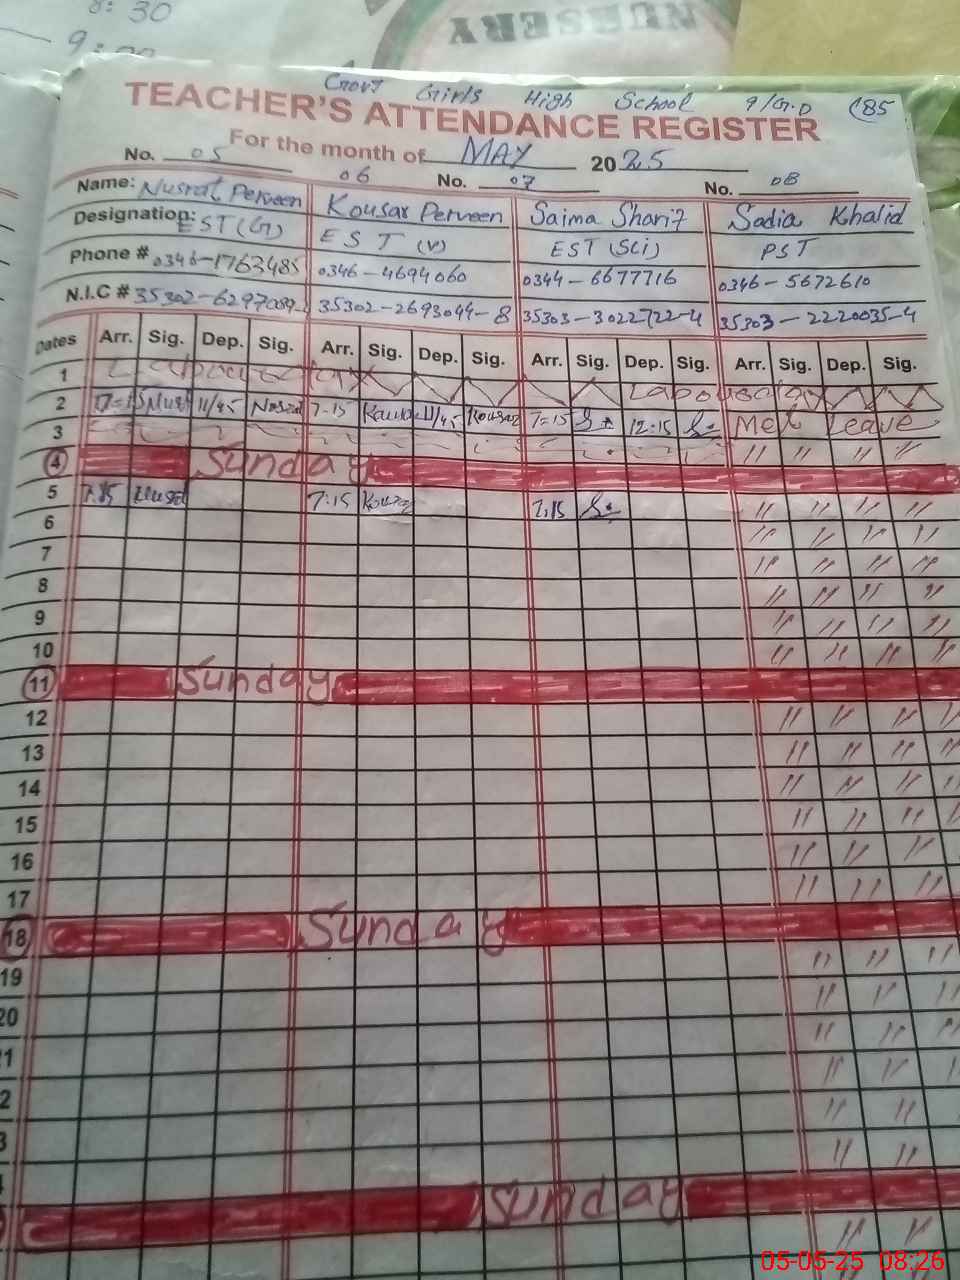 8:30
9:00
NURSERY
Govt Girls High School 9/G.D 85
TEACHER'S ATTENDANCE REGISTER
For the month of MAY 2025
No. 05 06 No. 07 No. 08
Name: Nusrat Perveen Kousar Perveen Saima Sharif Sadia Khalid
Designation: EST (G) EST (V) EST (Sci) PST
Phone # 0346-1763485 0346-4694060 0344-6677716 0346-5672610
N.I.C # 35302-2693094-8 35303-3022722-4 35303-2220035-4
Dates Arr. Sig. Dep. Sig. Arr. Sig. Dep. Sig. Arr. Sig. Dep. Sig. Arr. Sig. Dep. Sig.
1 Labour day
2 7=15 11/45 7-15 11/45 Kousar 7=15 12:15 Med Leave
3 " " " "
4 Sunday
5 7:15 7:15 7:15 " " " "
6 " " " "
7 " " " "
8 " " " "
9 " " " "
10 " " " "
11 Sunday
12 " " " "
13 " " " "
14 " " " "
15 " " " "
16 " " "
17 " " "
18 Sunday
19 " " "
20 " " "
1 " " "
2 " " "
3 " "
Sunday
" "
05-05-25 08:26